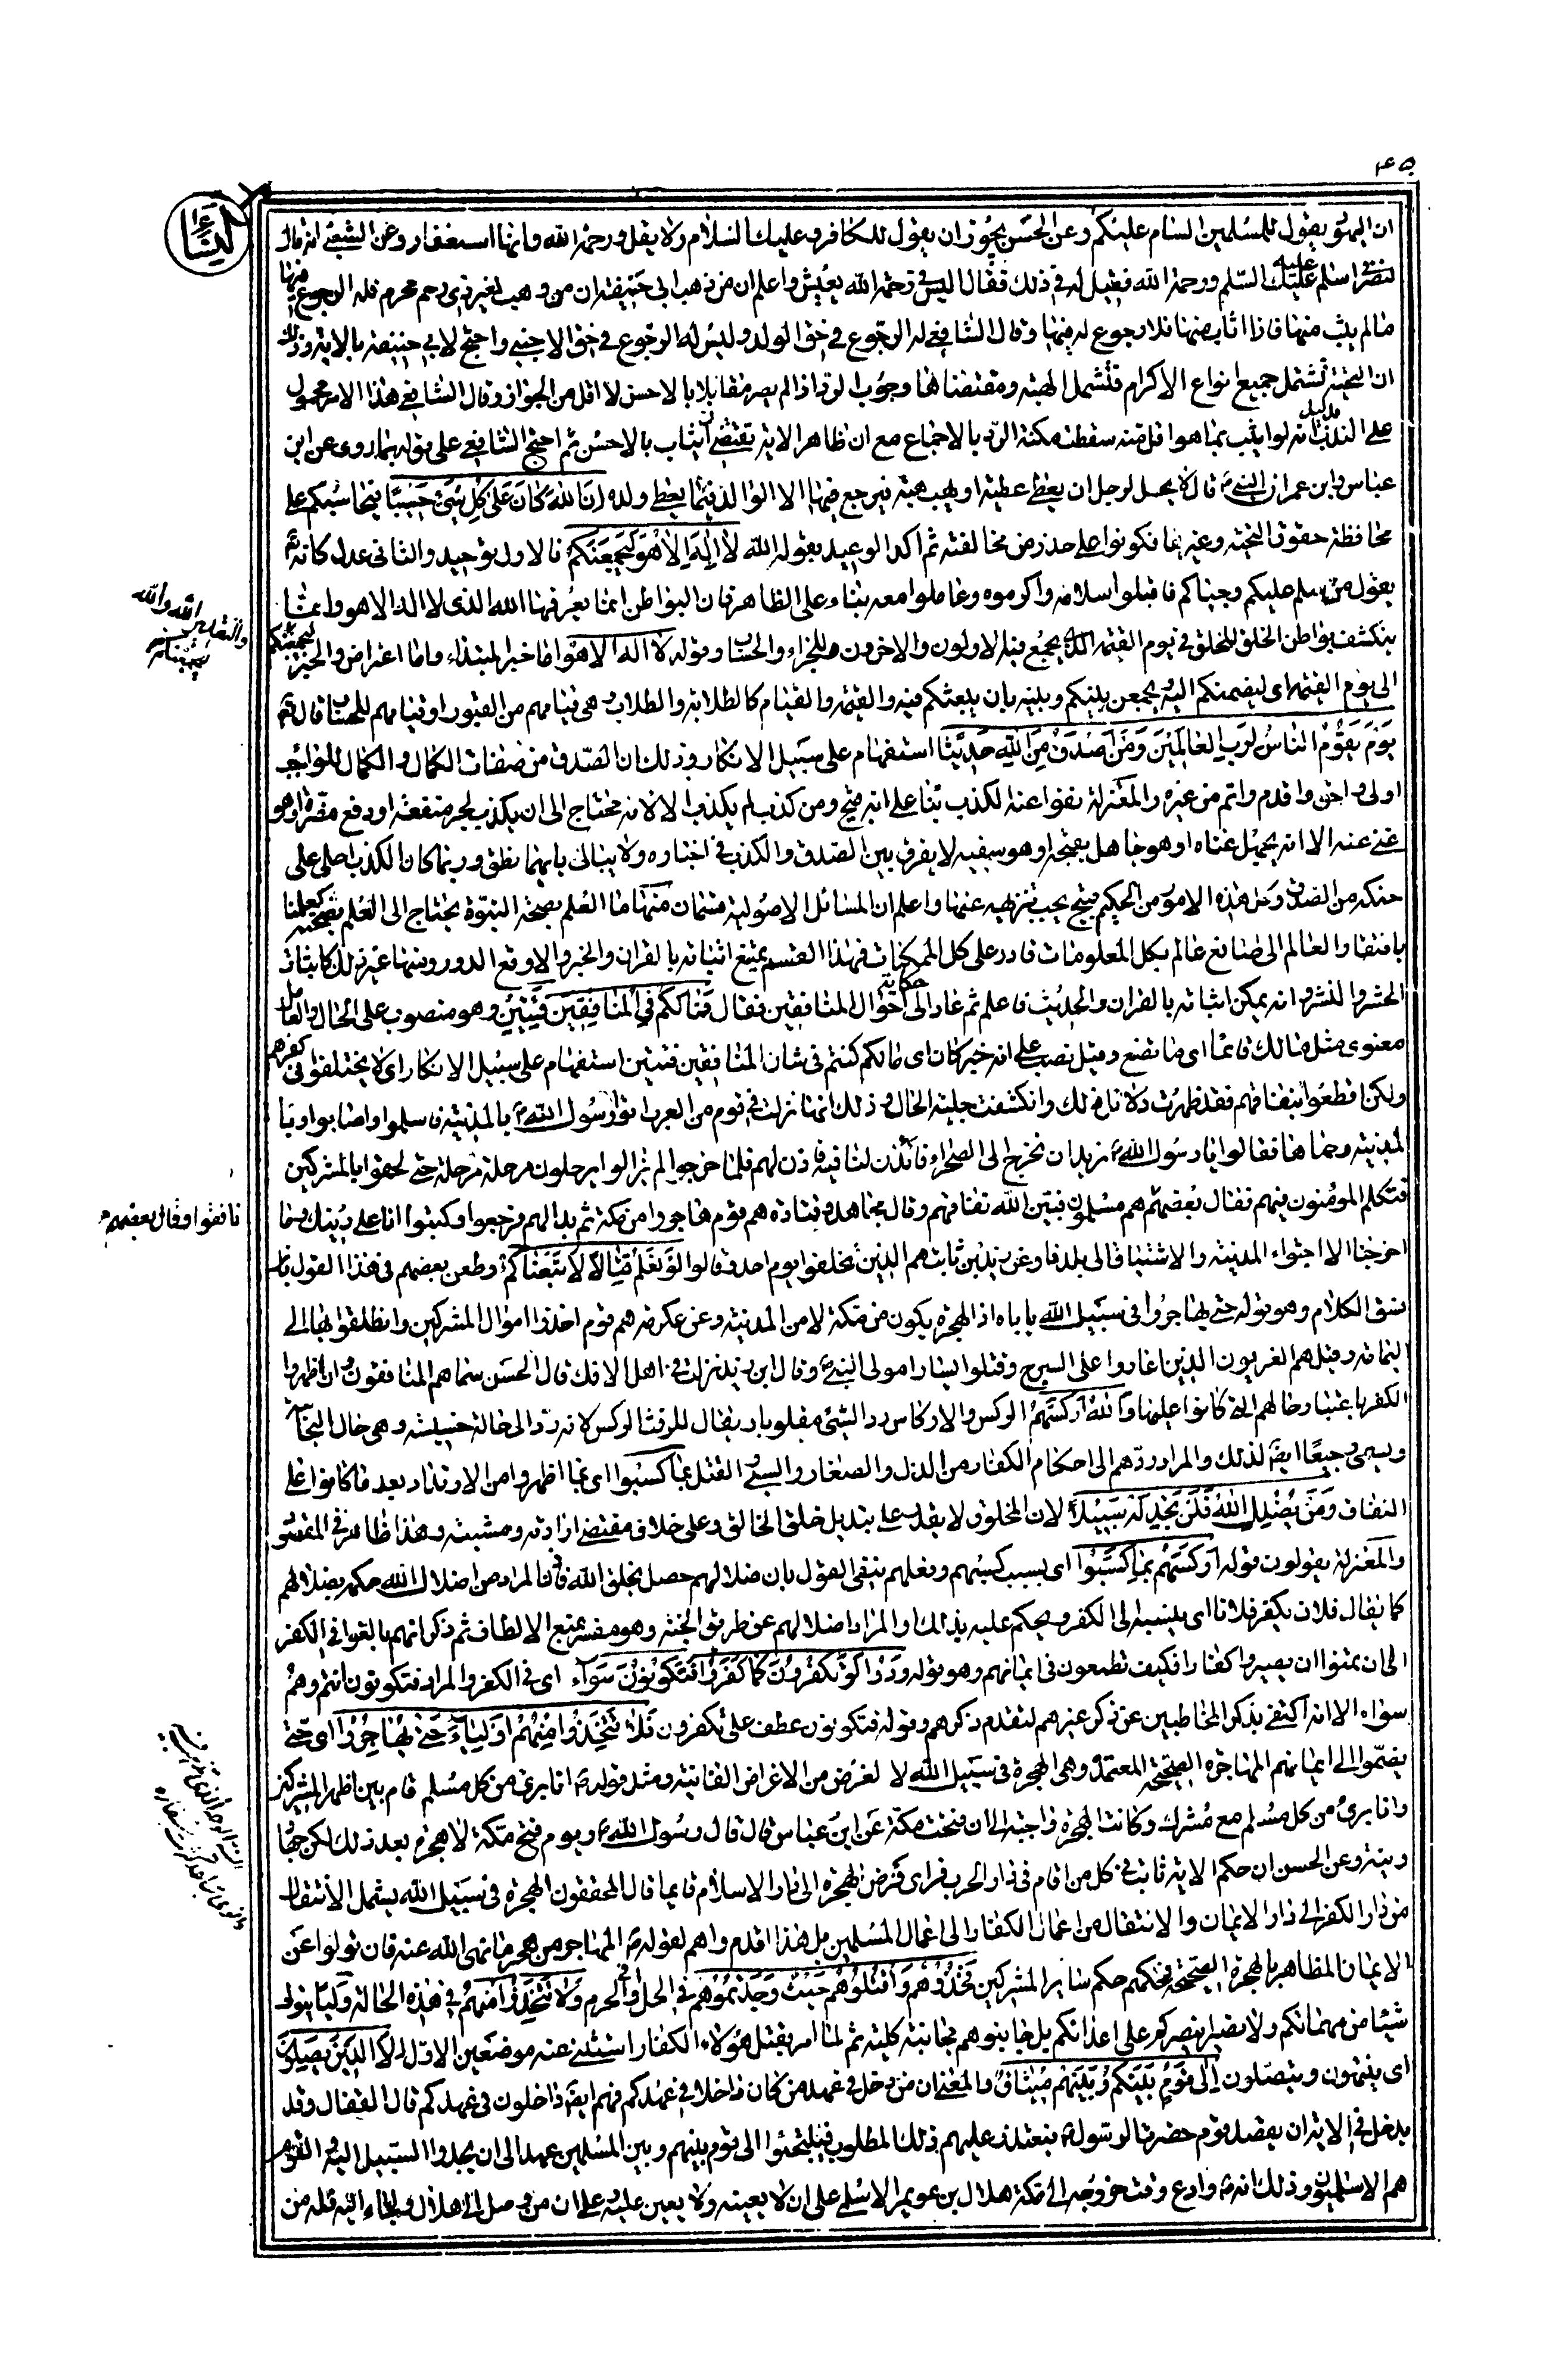 ٤٥
النساء
ان اليهود يقول للمسلمين السام عليكم وعن الحسن يجوز ان يقول للكافر وعليك السلام ولا يقل ورحمة الله فانها استغفار وعن الشعبي انه قال
لنصراني سلم عليه عليك السلم ورحمة الله فقيل له في ذلك فقال اليس في رحمة الله يعيش واعلم ان من مذهب ابي حنيفة ان من وهب لغير ذي رحم محرم فله الرجوع فيها
ما لم يثب منها فاذا اثاب منها فلا رجوع له فيها وقال الشافعي له الرجوع في حق الولد وليس له الرجوع في حق الاجنبي واحتج لابي حنيفة بالاية وذلك
ان التحية تشتمل جميع انواع الاكرام فتشمل الهبة ومقتضاها وجوب الرد اذا لم يصر مقابلا بالاحسن لا اقل من الجواز وقال الشافعي هذا الامر محمول
على الندب بدليل انه لو اثيب بما هو اقل منه سقطت مكنة الرد بالاجماع مع ان ظاهر الاية يقتضي ان يثاب بالاحسن ثم احتج الشافعي على قوله بما روى عن ابن
عباس وابن عمر ان النبي ص قال لا يحل لرجل ان يعطي عطية او يهب هبة فيرجع فيها الا الوالد فيما يعطي ولده ان الله كان على كل شيء حسيبا فيحاسبكم على
محافظة حقوق التحية وغيرها فكونوا على حذر من مخالفته ثم اكد الوعيد بقوله الله لا اله الا هو ليجمعنكم فالاول توحيد والثاني عدل كانه تع
يقول من سلم عليكم وحياكم فاقبلوا سلامه واكرموه وعاملوا معه بناء على الظاهر فان البواطن انما يعرفها الله الذي لا اله الا هو وانما
ينكشف بواطن الخلق للخلق في يوم القيمة الذي يجمع فيه الاولون والاخرون للجزاء والحساب وقوله لا اله الا هو اما خبر المبتداء واما اعتراض والخبر ليجمعنكم
والتقدير الله والله ليجمعنكم
الى يوم القيمة اي ليضمنكم اليه يجمعن بينكم وبينه بان يبعثكم فيه والقيمة والقيام كالطلابة والطلاب هي قيامهم من القبور او قيامهم للحساب قال تع
يوم يقوم الناس لرب العالمين ومن اصدق من الله حديثا استفهام على سبيل الانكار وذلك ان الصدق من صفات الكمال والكمال للواجب
اولى واحق واقدم واتم من غيره والمعتزلة نفوا عنه الكذب بناء على انه قبيح ومن كذب لم يكذب الا لانه محتاج الى ان يكذب ليجر منفعة او دفع مضرة او هو
غني عنه الا انه يجهل غناه او هو جاهل بقبحه او هو سفيه لا يفرق بين الصدق والكذب في اخباره ولا يبالي بايهما نطق وربما كان الكذب احلى على
حنكه من الصدق وكل هذه الامور من الحكيم قبيح يجب تنزيهه عنها واعلم ان المسائل الاصولية قسمان منها ما العلم بصحة النبوة يحتاج الى العلم بصحته كعلمنا
بافتقار العالم الى صانع عالم بكل المعلومات قادر على كل الممكنات فهذا القسم يمتنع اثباته بالقران والخبر والا وقع الدور ومنها غير ذلك كاثبات
الحشر والنشر وانه يمكن اثباته بالقران والحديث فاعلم ثم عاد الى حكاية احوال المنافقين فقال فما لكم في المنافقين فئتين وهو منصوب على الحال والعامل
معنوي مثل مالك قائما اي ما تصنع وقيل نصب على انه خبر كان اي مالكم كنتم في شان المنافقين فئتين استفهام على سبيل الانكار اي لا تختلفوا في كفرهم
ولكن اقطعوا بنفاقهم فقد ظهرت دلائل ذلك وانكشفت جلية الحال وذلك انها نزلت في قوم من العرب اتوا رسول الله ص بالمدينة فاسلموا واصابوا وباء
المدينة وحماها فقالوا يا رسول الله ص نريد ان نخرج الى الصحراء فائذن لنا فيه فاذن لهم فلما خرجوا لم يزالوا يرحلون مرحلة مرحلة حتى لحقوا بالمشركين
فتكلم المومنون فيهم فقال بعضهم نافقوا وقال بعضهم هم مسلمون فبين الله نفاقهم وقال مجاهد وقتادة هم قوم هاجروا من مكة ثم بدا لهم فرجعوا وكتبوا انا على دينك وما
اخرجنا الا اجتواء المدينة والاشتياق الى بلدنا وعن زيد بن ثابت هم الذين تخلفوا يوم احد وقالوا لو نعلم قتالا لاتبعناكم وطعن بعضهم في هذا القول بان
نسق الكلام وهو قوله حتى يهاجروا في سبيل الله ياباه اذ الهجرة يكون من مكة لا من المدينة وعن عكرمة هم قوم اخذوا اموال المشركين وانطلقوا بها الى
اليمامة وقيل هم العرنيون الذين اغاروا على السرح وقتلوا يسارا مولى النبي ص وقال ابن زيد نزلت في اهل الافك قال الحسن سماهم المنافقون وان اظهروا
الكفر باعتبار حالهم التي كانوا عليها والله اركسهم الركس والاركاس رد الشيء مقلوبا ويقال للروث الركس لانه رد الى حالة خسيسة وهي حال النجاسة
ويسمى رجيعا ايضا لذلك والمراد ردهم الى احكام الكفار من الذل والصغار والسبي والقتل بما كسبوا اي بما اظهروا من الارتداد بعد ما كانوا على
النفاق ومن يضلل الله فلن تجد له سبيلا لان المخلوق لا يقدر على تبديل خلق الخالق وعلى خلاف مقتضى ارادته ومشيته وهذا ظاهر في المقصود
والمعتزلة يقولون قوله اركسهم بما كسبوا اي بسبب كسبهم وفعلهم ينفي القول بان ضلالهم حصل بخلق الله فاذن المراد من اضلال الله حكمه بضلالهم
كما يقال فلان يكفر فلانا اي ينسبه الى الكفر ويحكم عليه بذلك او المراد اضلالهم عن طريق الجنة وهو مفسر بمنع الالطاف ثم ذكر انهم بالغوا في الكفر
الى ان تمنوا ان يصيروا كفارا فكيف تطمعون في ايمانهم وهو قوله ودوا لو تكفرون كما كفروا فتكونون سواء اي في الكفر والمراد فتكونون انتم وهم
سواء الا انه اكتفى بذكر المخاطبين عن ذكر غيرهم لتقدم ذكرهم وقوله فتكونون عطف على تكفرون فلا تتخذوا منهم اولياء حتى يهاجروا اي حتى
يضموا الى ايمانهم المهاجرة الصحيحة المعتمدة وهي الهجرة في سبيل الله لا لغرض من الاغراض الفانية ومثله قوله ص انا بريء من كل مسلم قام بين اظهر المشركين
وانا بريء من كل مسلم مع مشرك وكانت الهجرة واجبة الى ان فتحت مكة عن ابن عباس قال قال رسول الله ص يوم فتح مكة لا هجرة بعد ذلك لكن جهاد
ونية وعن الحسن ان حكم الاية ثابت في كل من اقام في دار الحرب فراى فرض الهجرة الى دار الاسلام قائما قال المحققون الهجرة في سبيل الله يشمل الانتقال
من دار الكفر الى دار الايمان والانتقال من اعمال الكفار الى اعمال المسلمين بل هذا اقدم واهم لقوله ص المهاجر من هجر ما نهى الله عنه فان تولوا عن
الايمان المظاهر بالهجرة الصحيحة فحكمهم حكم سائر المشركين فخذوهم واقتلوهم حيث وجدتموهم في الحل والحرم ولا تتخذوا منهم في هذه الحالة وليا يتولى
شيئا من مهماتكم ولا نصيرا ينصركم على اعدائكم بل جانبوهم مجانبة كلية ثم لما امر بقتل هؤلاء الكفار استثنى عنه موضعين الاول الا الذين يصلون
اي ينتهون ويتصلون الى قوم بينكم وبينهم ميثاق والمعنى ان من دخل في عهد من كان داخلا في عهدكم فهم ايضا داخلون في عهدكم قال القفال وقد
يدخل في الاية ان يقصد قوم حضرة الرسول ص فيتعذر عليهم ذلك المطلوب فيلتجئوا الى قوم بينهم وبين المسلمين عهد الى ان يجدوا السبيل اليه والقوم
هم الاسلميون وذلك انه ص وادع وقت خروجه الى مكة هلال بن عويمر الاسلمي على ان لا يعينه ولا يعين عليه وعلى ان من وصل الى هلال ولجاء اليه فله من